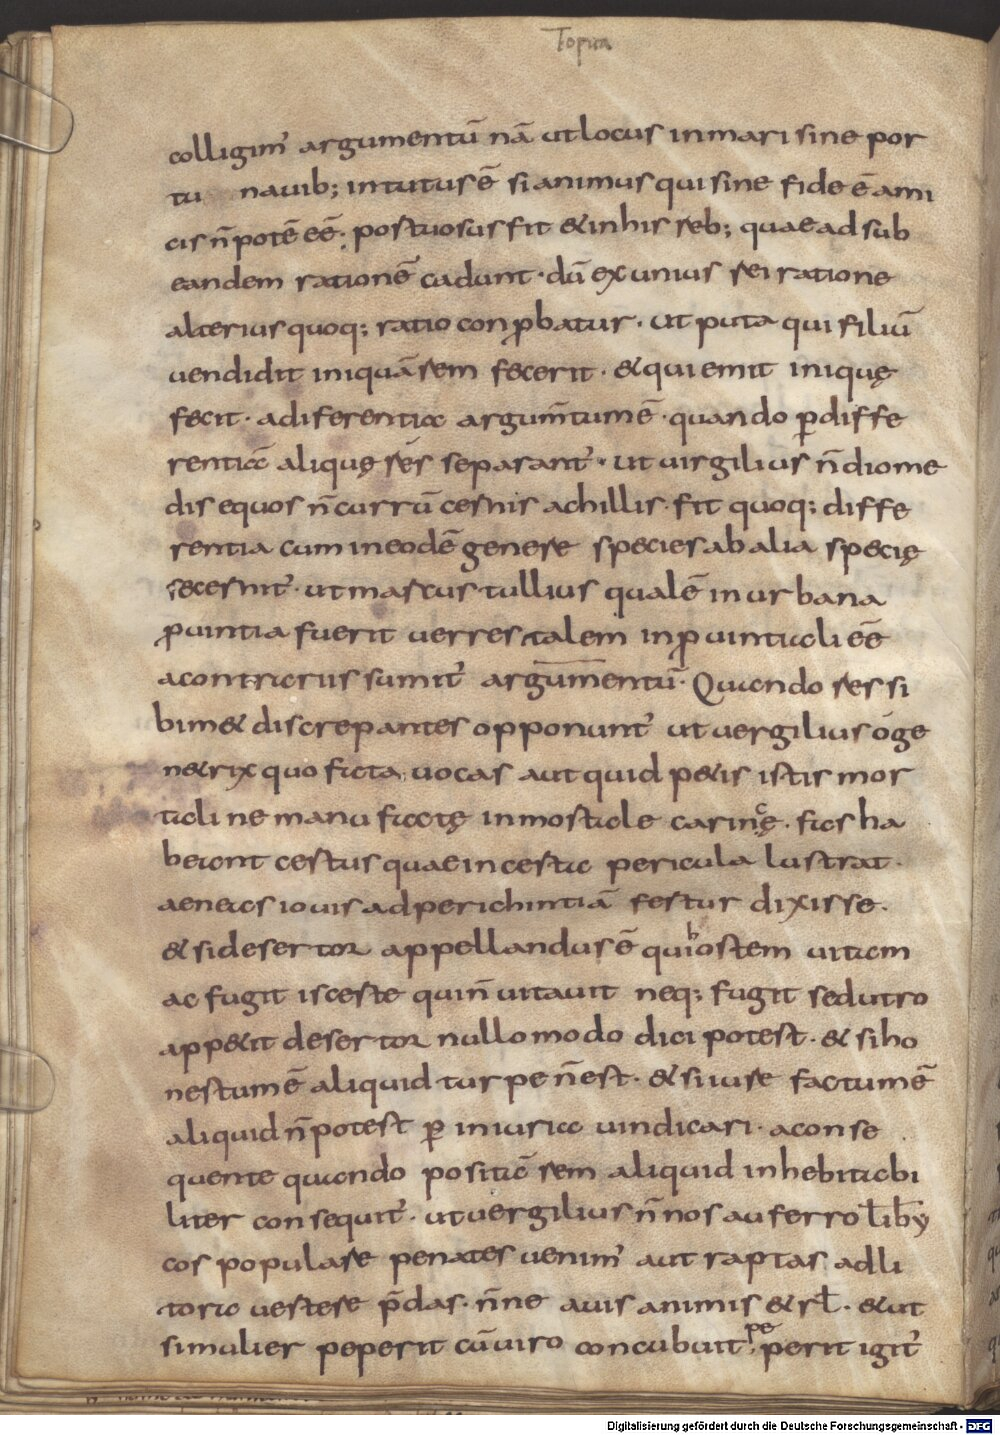 Topica
colligim᷒ argumentū nā ut locus in mari sine por
tu nauib; intutus ē si animus qui sine fide ē ami
cis n̄ potē eē. portuosus fit & in his reb; quae ad sub
eandem rationē cadunt · dū ex unius rei ratione
alterius quoq; ratio conꝓbatur · ut puta qui filiū
uendidit iniquā rem fecerit · & qui emit inique
fecit · a diferentia argum̄tum ē · quando ꝑ diffe
rentiā aliquę res separant᷒ · ut uirgilius n̄ diome
dis equos n̄ currū cernis achillis · fit quoq; diffe
rentia cum in eodē genere species ab alia specię
secernit᷒ · ut marcus tullius qualē in urbana
ꝓuintia fuerit uerres talem in ꝓuintiali eē
a contrariis sumit᷒ argumentū · Quando res si
bim& discrepantes opponunt᷒ ut uergilius ō ge
n&rix quo fata uocas aut quid p&is istis mor
tali ne manu factę in mortale carinę · fas ha
beant certus quae incerta pericula lustrat ·
aeneas iouis ad perichintiā fertur dixisse ·
& si desertor appellandus ē qui hostem uitam
ac fugit is certe qui n̄ uitauit neq; fugit sed ultro
app&it desertor nullo modo dici potest · & si ho
nestum ē aliquid turpe n̄ est · & si iure factum ē
aliquid n̄ potest ꝑ iniuria uindicari · a conse
quente quando positā rem aliquid inhebitabi
liter consequit᷒ · ut uergilius n̄ nos au ferro l̄ liby
cos populare penates uenim᷒ aut raptas ad li
tora uertere p̄das · n̄ ne auis animis & rł · & ut
si mulier peperit cū uiro concubuit peperit igit᷒
Digitalisierung gefördert durch die Deutsche Forschungsgemeinschaft - DFG